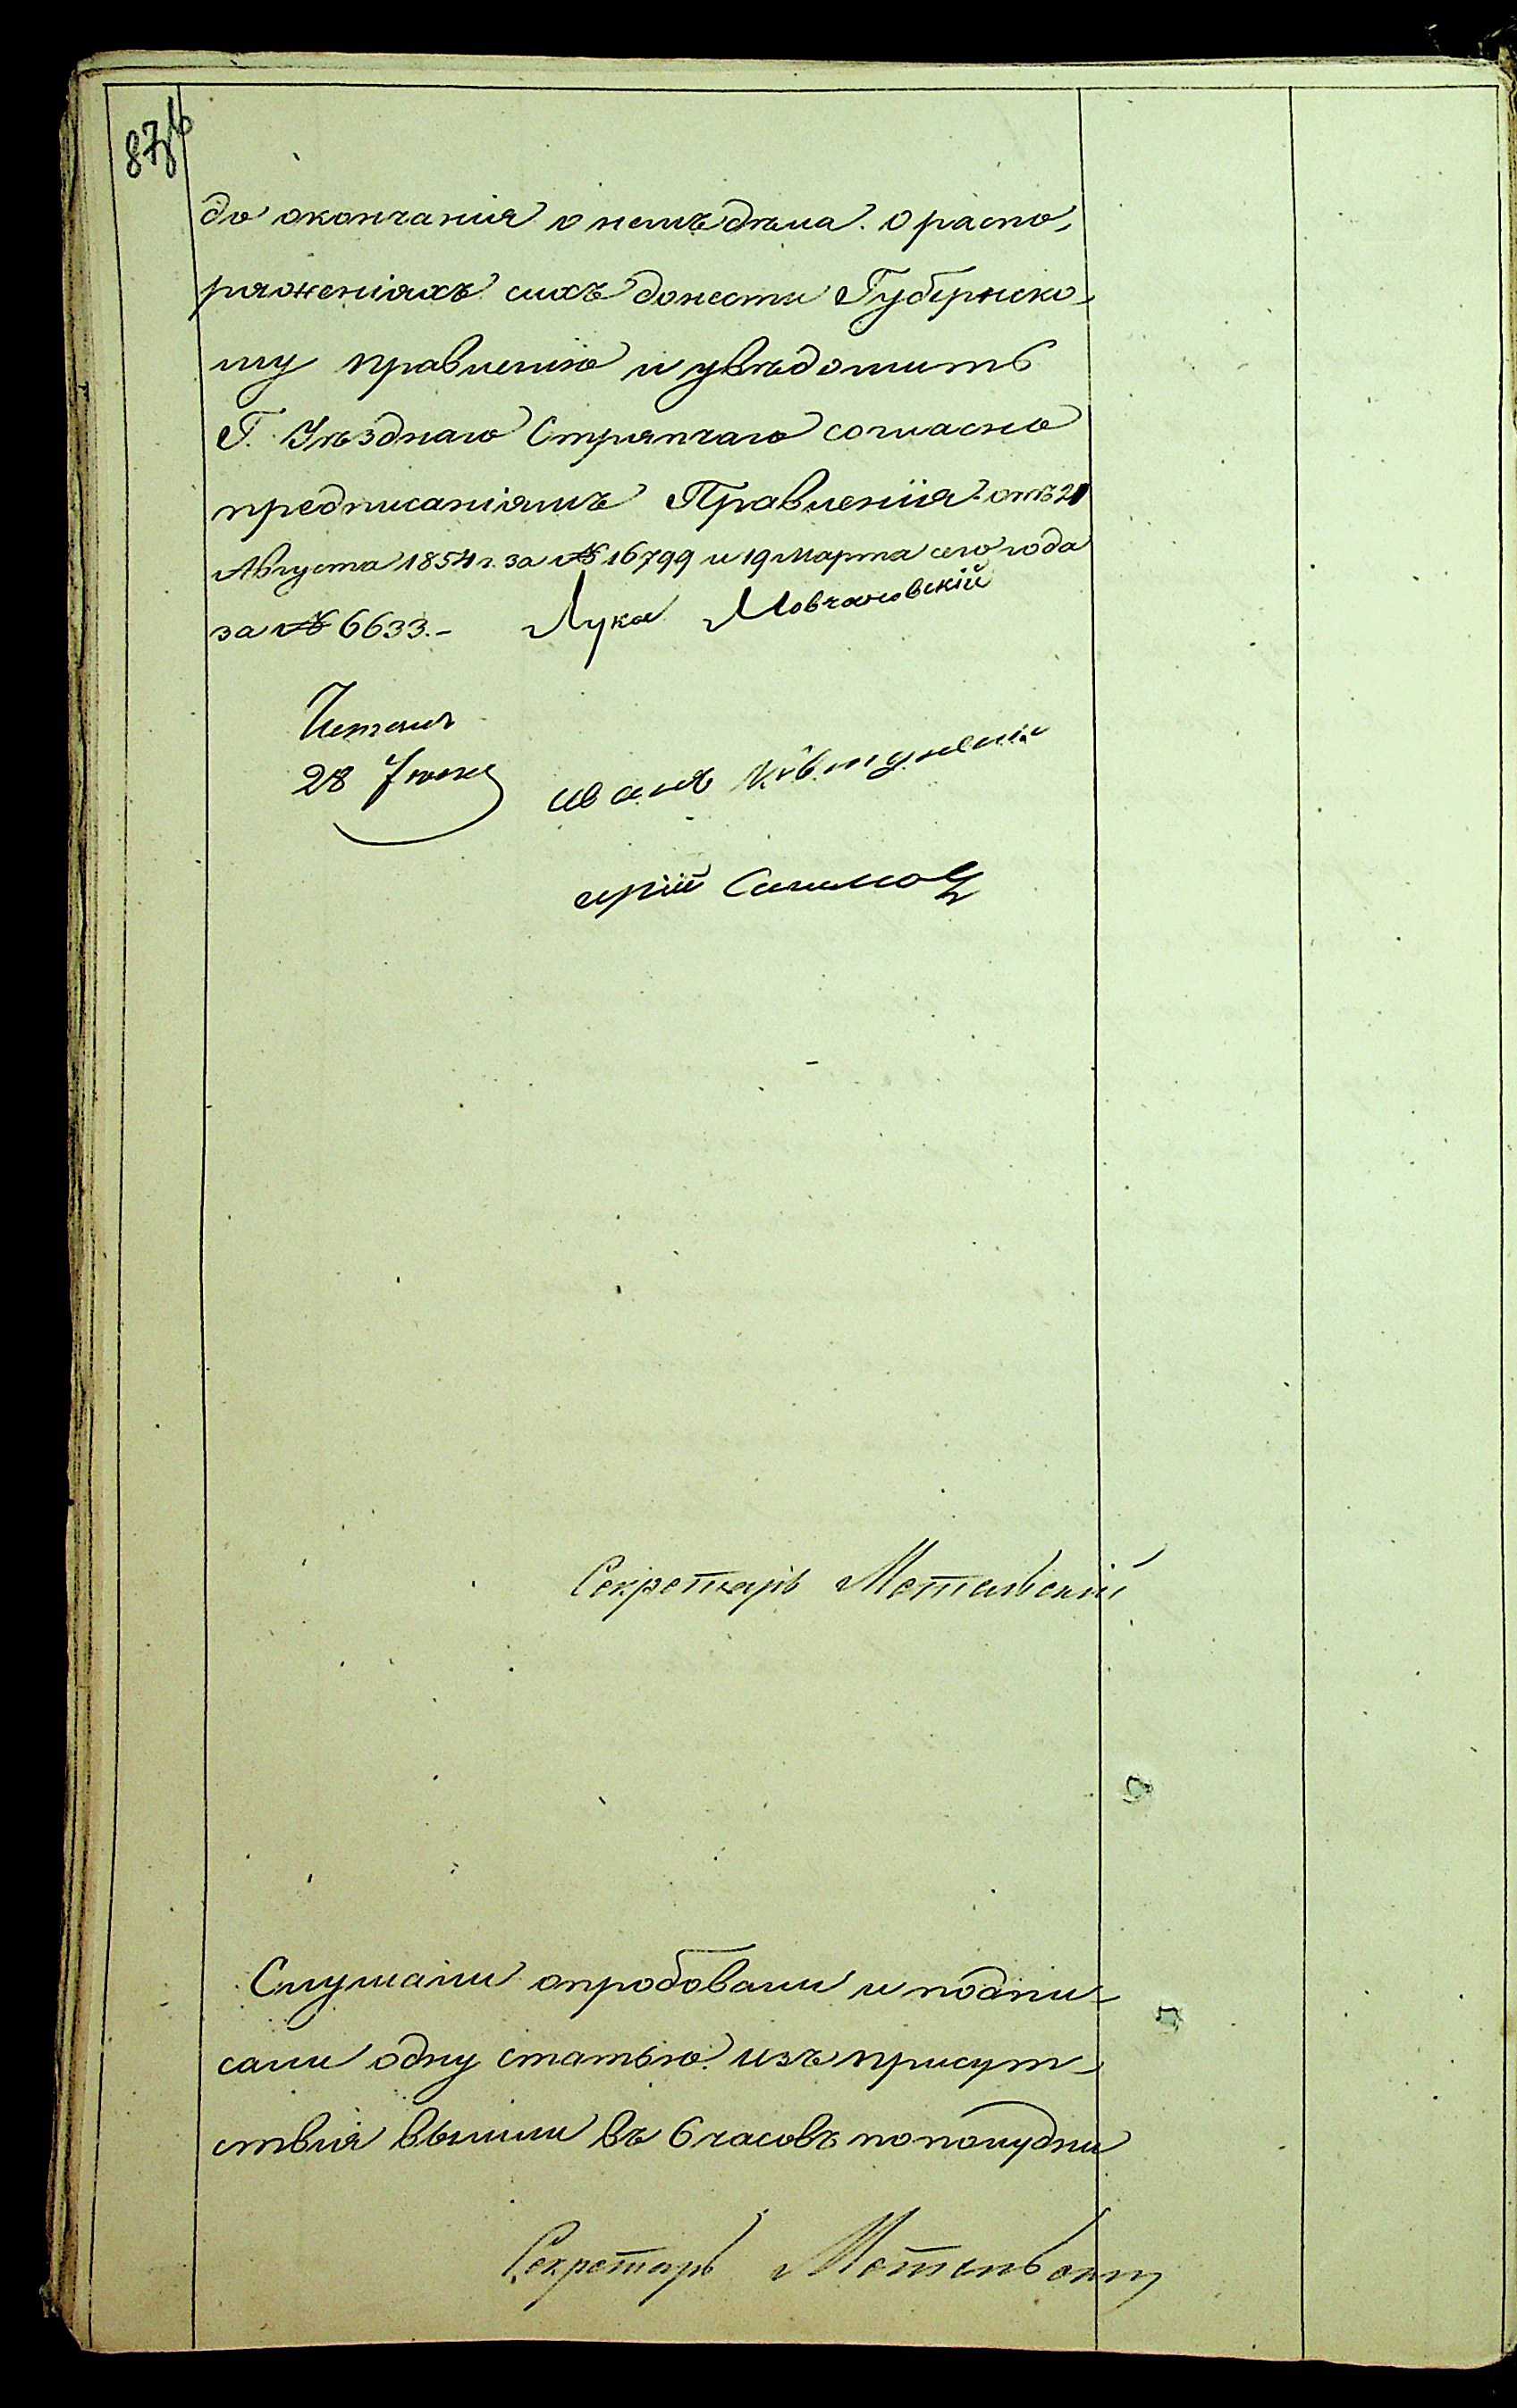 до окончанія о немъ дѣла. О распо-
ряженіяхъ сихъ донести Губернско-
му правленію и увѣдомить
Г. Уѣзднаго Стряпчаго согласно
предписаніямъ Правленія отъ 21
Августа 1854 г. за № 16799 и 19 Марта сего года
за № 6633.- Лука Мовчановскій
Читалъ
28 Іюня
Иванъ
Секретарь
Слушали опробовали и подпи-
сали одну статью. Изъ присут-
ствія вышли въ 6 часовъ пополудни
Секретарь